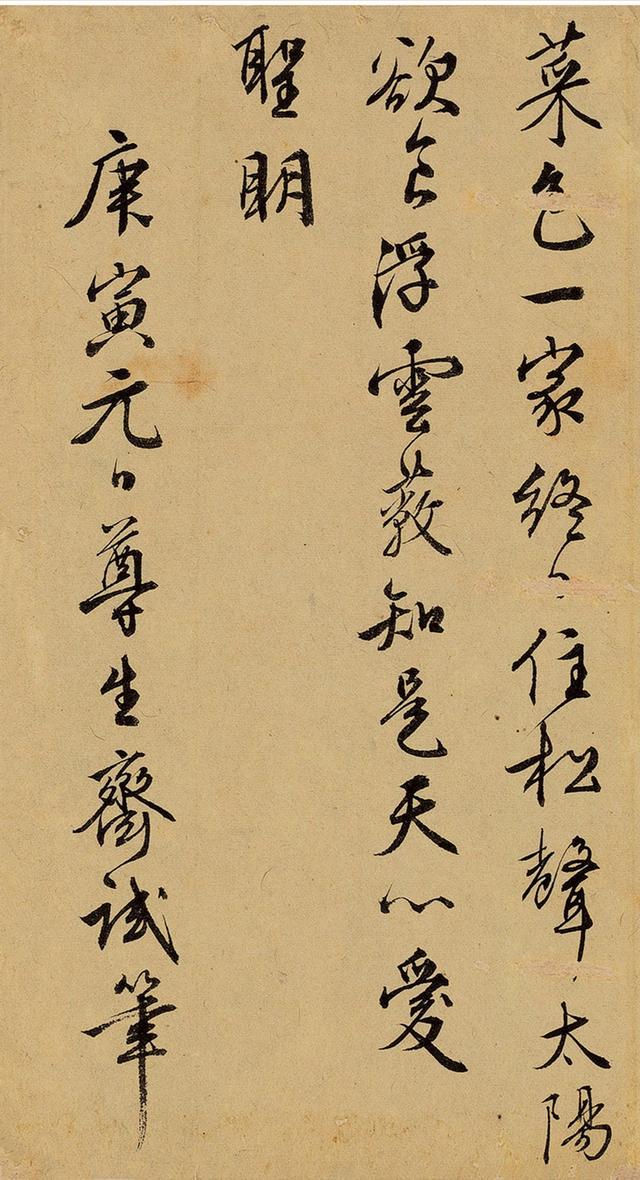 菜色一家終日住松聲太陽
欲食浮雲蔽知是天心愛
聖明
庚寅元日尊生齋試筆